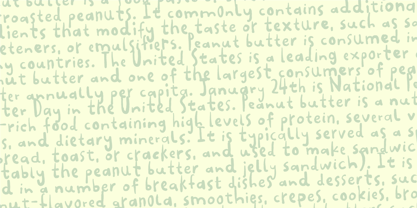 ut butter is a food paste or
roasted peanuts. It commonly contains additiona
dients that modify the taste or texture, such as s
eteners, or emulsifiers. Peanut butter is consumed i
y countries. The United States is a leading exporter
nut butter and one of the largest consumers of pea
tter annually per capita. January 24th is National
ter Day in the United States. Peanut butter is a nut
-rich food containing high levels of protein, several v
s, and dietary minerals. It is typically served as a s
bread, toast, or crackers, and used to make sandwic
tably the peanut butter and jelly sandwich). It is
d in a number of breakfast dishes and desserts, suc
nut-flavored granola, smoothies, crepes, cookies, bro